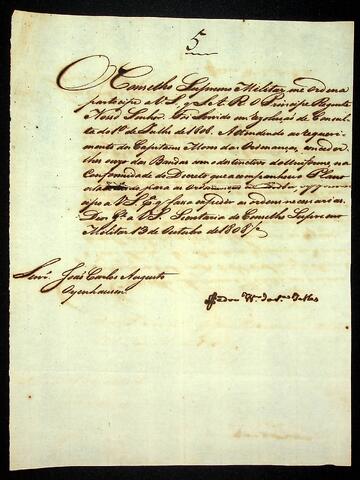 5
O Conselho Supremo Militar, me ordena
participe a V. S. q S. A. R. O Principe Regente
Nosso Senhor. Foi servido em rezolução de Consul-
ta de 1º de Julho de 1808. Attendendo ao requeri-
mento do Capitam Mor das Ordenanças, conceder
lhes o uzo das Bandas com o destinctivo do Uniforme, na
Conformidade do Decreto que acompanhou o Plano
para as Ordenanças
cipo a V. S. pª q faça expedir as ordens necessarias.
Deos Gº a V. S. Secretaria do Conselho Supremo
Militar 13 de Outubro de 1808
Senr. João Carlos Augusto
Oyenhausen
Pedro